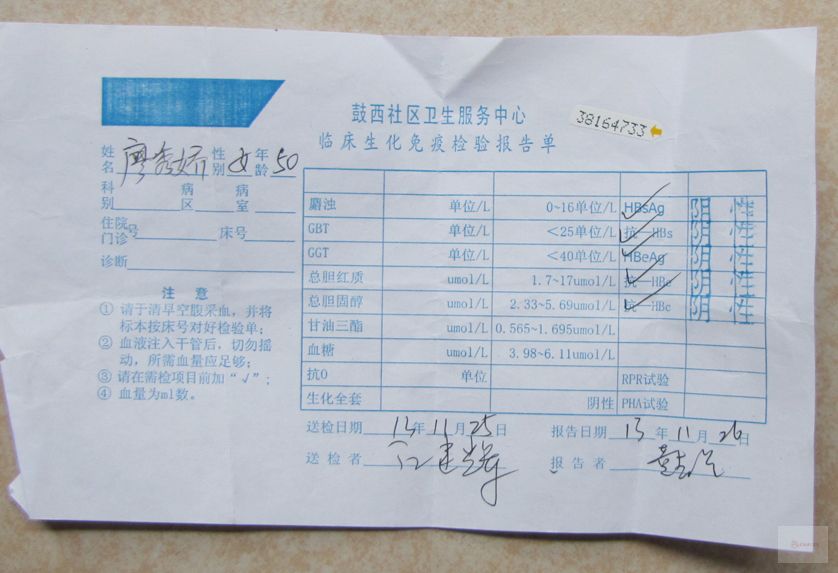 鼓西社区卫生服务中心
38164733
临床生化免疫检验报告单
姓名 廖秀娇 性别 女 年龄 50
科别 病区 病室
住院号 门诊 床号
诊断
注 意
① 请于清早空腹采血，并将
标本按床号对好检验单；
② 血液注入干管后，切勿摇
动，所需血量应足够；
③ 请在需检项目前加“√”；
④ 血量为ml数。
麝浊 单位/L 0~16单位/L ✓HBsAg 阴 性
GBT 单位/L ＜25单位/L ✓抗—HBs 阴 性
GGT 单位/L ＜40单位/L ✓HBeAg 阴 性
总胆红质 umol/L 1.7~17umol/L ✓抗—HBe 阴 性
总胆固醇 umol/L 2.33~5.69umol/L ✓抗—HBc 阴 性
甘油三酯 umol/L 0.565~1.695umol/L
血糖 umol/L 3.98~6.11umol/L
抗O 单位 RPR试验
生化全套 阴性 PHA试验
送检日期 13年11月25日 报告日期 13年11月26日
送检者 报告者